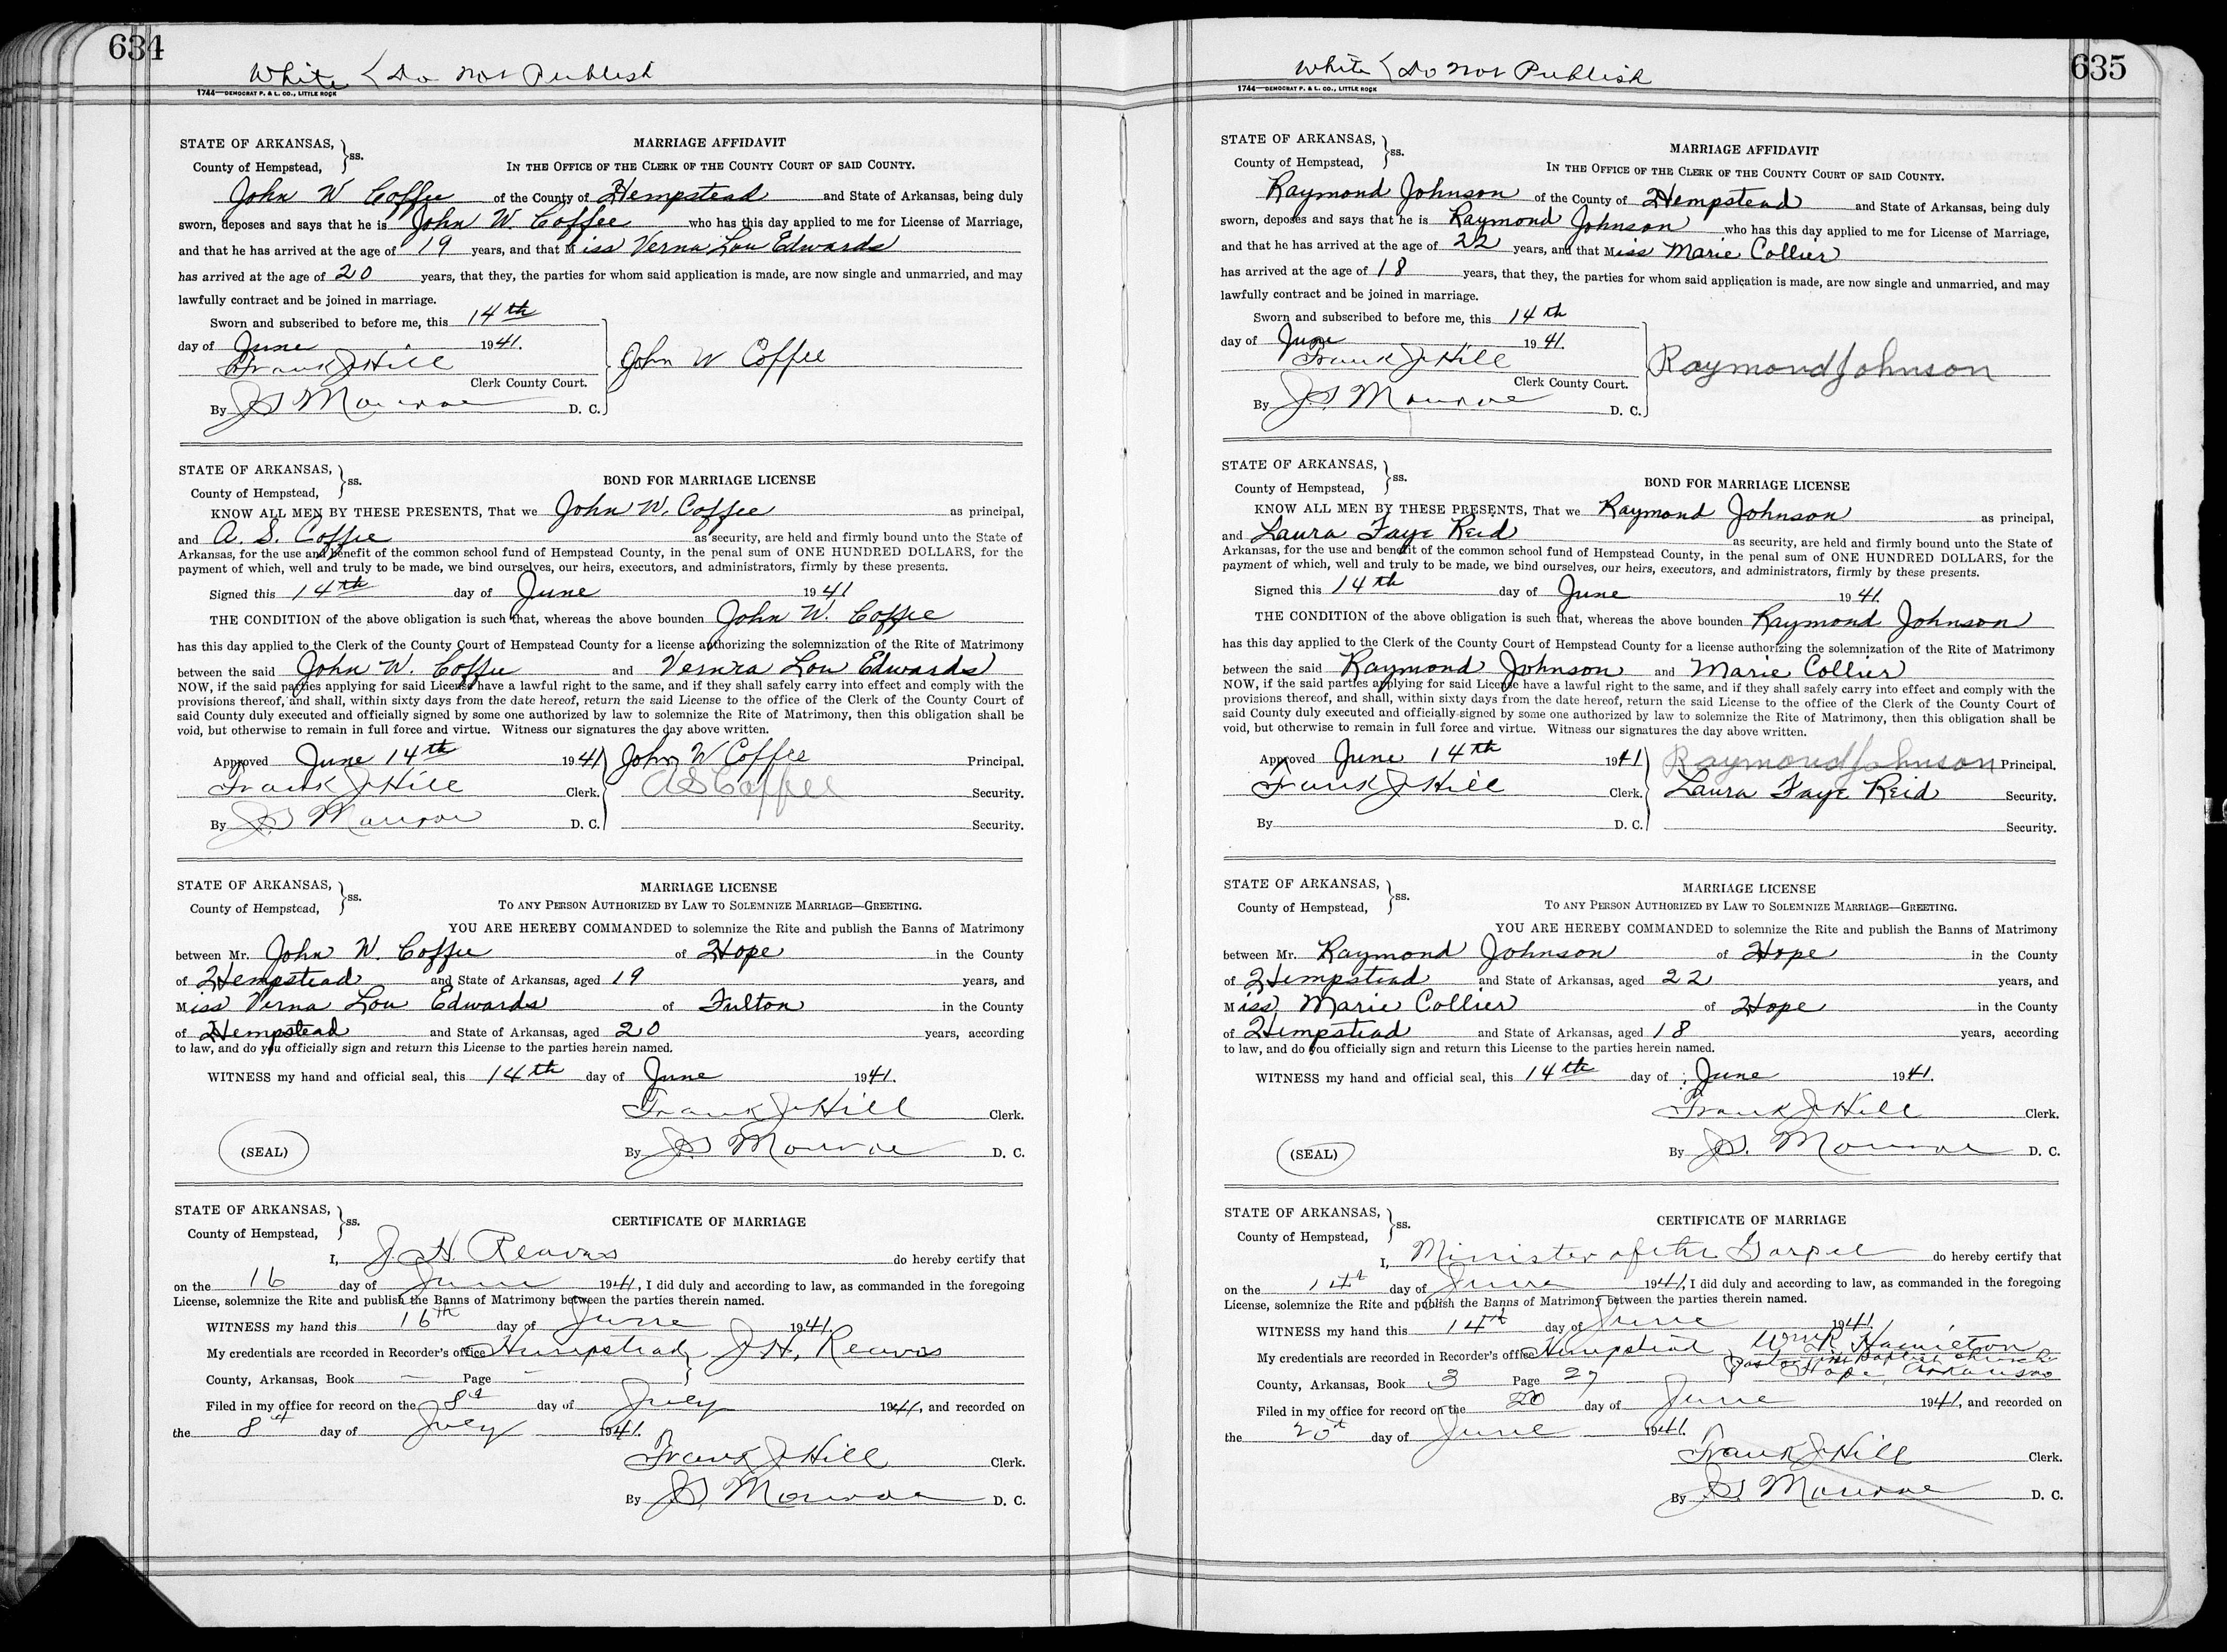 634
White { Do Not Publish
1744—DEMOCRAT P. & L. CO., LITTLE ROCK
STATE OF ARKANSAS,
County of Hempstead, } ss.
MARRIAGE AFFIDAVIT
IN THE OFFICE OF THE CLERK OF THE COUNTY COURT OF SAID COUNTY.
John W Coffee of the County of Hempstead and State of Arkansas, being duly
sworn, deposes and says that he is John W. Coffee who has this day applied to me for License of Marriage,
and that he has arrived at the age of 19 years, and that Miss Verna Lou Edwards
has arrived at the age of 20 years, that they, the parties for whom said application is made, are now single and unmarried, and may
lawfully contract and be joined in marriage.
Sworn and subscribed to before me, this 14th
day of June 1941.
Frank J Hill John W Coffee
Clerk County Court.
By J.S Monroe D. C.
STATE OF ARKANSAS,
County of Hempstead, } ss.
BOND FOR MARRIAGE LICENSE
KNOW ALL MEN BY THESE PRESENTS, That we John W. Coffee as principal,
and A. S. Coffee as security, are held and firmly bound unto the State of
Arkansas, for the use and benefit of the common school fund of Hempstead County, in the penal sum of ONE HUNDRED DOLLARS, for the
payment of which, well and truly to be made, we bind ourselves, our heirs, executors, and administrators, firmly by these presents.
Signed this 14th day of June 1941
THE CONDITION of the above obligation is such that, whereas the above bounden John W. Coffee
has this day applied to the Clerk of the County Court of Hempstead County for a license authorizing the solemnization of the Rite of Matrimony
between the said John W. Coffee and Vernra Lou Edwards
NOW, if the said parties applying for said License have a lawful right to the same, and if they shall safely carry into effect and comply with the
provisions thereof, and shall, within sixty days from the date hereof, return the said License to the office of the Clerk of the County Court of
said County duly executed and officially signed by some one authorized by law to solemnize the Rite of Matrimony, then this obligation shall be
void, but otherwise to remain in full force and virtue. Witness our signatures the day above written.
Approved June 14th 1941 John W Coffee Principal.
Frank J Hill Clerk. A S Coffee Security.
By J.S Monroe D. C. Security.
STATE OF ARKANSAS,
County of Hempstead, } ss.
MARRIAGE LICENSE
TO ANY PERSON AUTHORIZED BY LAW TO SOLEMNIZE MARRIAGE—GREETING.
YOU ARE HEREBY COMMANDED to solemnize the Rite and publish the Banns of Matrimony
between Mr. John W. Coffee of Hope in the County
of Hempstead and State of Arkansas, aged 19 years, and
Miss Verna Lou Edwards of Fulton in the County
of Hempstead and State of Arkansas, aged 20 years, according
to law, and do you officially sign and return this License to the parties herein named.
WITNESS my hand and official seal, this 14th day of June 1941.
Frank J Hill Clerk.
(SEAL) By J.S Monroe D. C.
STATE OF ARKANSAS,
County of Hempstead, } ss.
CERTIFICATE OF MARRIAGE
I, J. H. Reaves do hereby certify that
on the 16 day of June 1941, I did duly and according to law, as commanded in the foregoing
License, solemnize the Rite and publish the Banns of Matrimony between the parties therein named.
WITNESS my hand this 16th day of June 1941.
My credentials are recorded in Recorder's office Hempstead } J.H. Reaves
County, Arkansas, Book — Page —
Filed in my office for record on the 8th day of July 1941, and recorded on
the 8th day of July 1941.
Frank J Hill Clerk.
By J.S. Monroe D. C.
635
White { Do Not Publish
1744—DEMOCRAT P. & L. CO., LITTLE ROCK
STATE OF ARKANSAS,
County of Hempstead, } ss.
MARRIAGE AFFIDAVIT
IN THE OFFICE OF THE CLERK OF THE COUNTY COURT OF SAID COUNTY.
Raymond Johnson of the County of Hempstead and State of Arkansas, being duly
sworn, deposes and says that he is Raymond Johnson who has this day applied to me for License of Marriage,
and that he has arrived at the age of 22 years, and that Miss Marie Collier
has arrived at the age of 18 years, that they, the parties for whom said application is made, are now single and unmarried, and may
lawfully contract and be joined in marriage.
Sworn and subscribed to before me, this 14th
day of June 1941.
Frank J Hill Raymond Johnson
Clerk County Court.
By J.S. Monroe D. C.
STATE OF ARKANSAS,
County of Hempstead, } ss.
BOND FOR MARRIAGE LICENSE
KNOW ALL MEN BY THESE PRESENTS, That we Raymond Johnson as principal,
and Laura Faye Reid as security, are held and firmly bound unto the State of
Arkansas, for the use and benefit of the common school fund of Hempstead County, in the penal sum of ONE HUNDRED DOLLARS, for the
payment of which, well and truly to be made, we bind ourselves, our heirs, executors, and administrators, firmly by these presents.
Signed this 14th day of June 1941.
THE CONDITION of the above obligation is such that, whereas the above bounden Raymond Johnson
has this day applied to the Clerk of the County Court of Hempstead County for a license authorizing the solemnization of the Rite of Matrimony
between the said Raymond Johnson and Marie Collier
NOW, if the said parties applying for said License have a lawful right to the same, and if they shall safely carry into effect and comply with the
provisions thereof, and shall, within sixty days from the date hereof, return the said License to the office of the Clerk of the County Court of
said County duly executed and officially signed by some one authorized by law to solemnize the Rite of Matrimony, then this obligation shall be
void, but otherwise to remain in full force and virtue. Witness our signatures the day above written.
Approved June 14th 1941 Raymond Johnson Principal.
Frank J Hill Clerk. Laura Faye Reid Security.
By D. C. Security.
STATE OF ARKANSAS,
County of Hempstead, } ss.
MARRIAGE LICENSE
TO ANY PERSON AUTHORIZED BY LAW TO SOLEMNIZE MARRIAGE—GREETING.
YOU ARE HEREBY COMMANDED to solemnize the Rite and publish the Banns of Matrimony
between Mr. Raymond Johnson of Hope in the County
of Hempstead and State of Arkansas, aged 22 years, and
Miss Marie Collier of Hope in the County
of Hempstead and State of Arkansas, aged 18 years, according
to law, and do you officially sign and return this License to the parties herein named.
WITNESS my hand and official seal, this 14th day of June 1941.
Frank J Hill Clerk.
(SEAL) By J.S. Monroe D. C.
STATE OF ARKANSAS,
County of Hempstead, } ss.
CERTIFICATE OF MARRIAGE
I, Minister of the Gospel do hereby certify that
on the 14th day of June 1941, I did duly and according to law, as commanded in the foregoing
License, solemnize the Rite and publish the Banns of Matrimony between the parties therein named.
WITNESS my hand this 14th day of June 1941.
My credentials are recorded in Recorder's office Hempstead Wm R Hamilton
Pastor First Baptist Church
County, Arkansas, Book 3 Page 27 Hope, Arkansas
Filed in my office for record on the 20 day of June 1941, and recorded on
the 20th day of June 1941.
Frank J Hill Clerk.
By J.S. Monroe D. C.